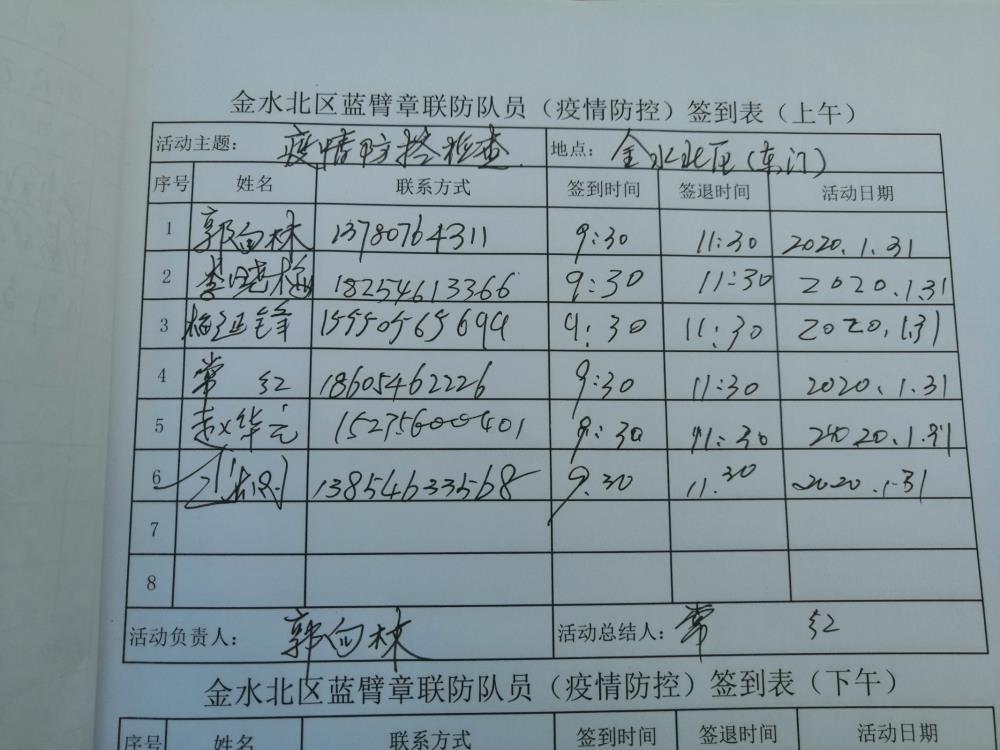 金水北区蓝臂章联防队员（疫情防控）签到表（上午）
活动主题： 疫情防控检查 地点： 金水北区（东门）
序号 姓名 联系方式 签到时间 签退时间 活动日期
1 郭向林 13780764311 9:30 11:30 2020.1.31
2 李晓梅 18254613366 9:30 11:30 2020.1.31
3 9:30 11:30 2020.1.31
4 常红 18605462226 9:30 11:30 2020.1.31
5 赵华元 15275600401 9:30 11:30 2020.1.31
6 13854633568 9.30 11.30 2020.1.31
7
8
活动负责人： 郭向林 活动总结人： 常红
金水北区蓝臂章联防队员（疫情防控）签到表（下午）
序号 姓名 联系方式 签到时间 签退时间 活动日期